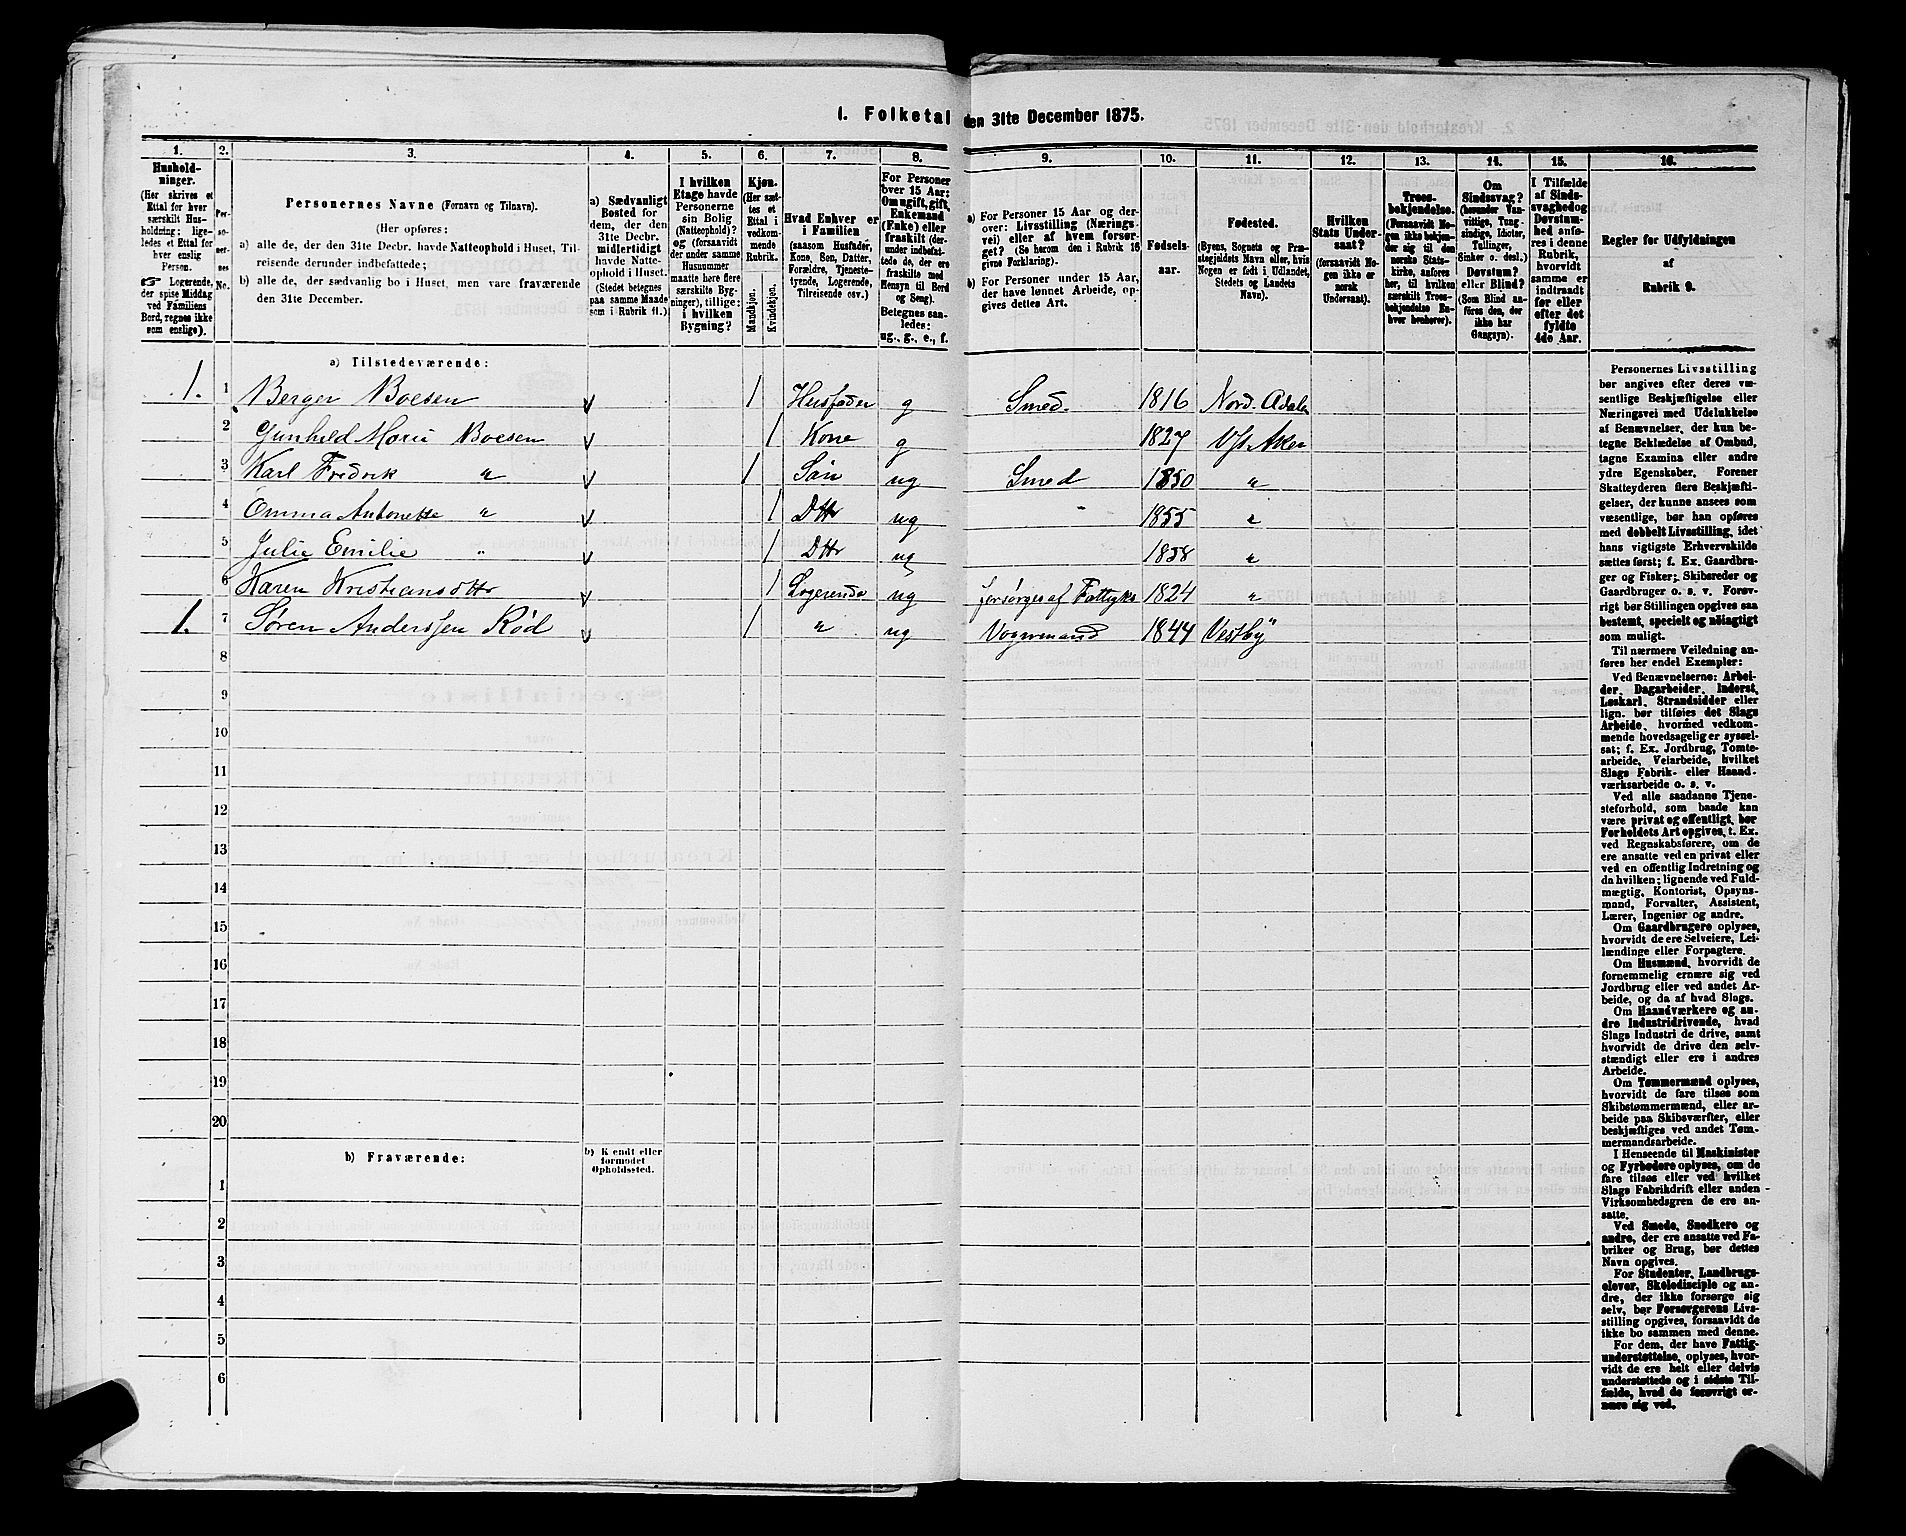 1. Folketal den 31te December 1875.
1. 2. 3. 4. 5. 6. 7. 8. 9. 10. 11. 12. 13. 14. 15. 16.
Hushold-
ninger.
(Her skrives et
Ettal for hver
særskilt Hus-
holdning; lige-
ledes et Ettal for
hver enslig
Person.
☞ Logerende,
der spise Middag
ved Familiens
Bord, regnes ikke
som enslige).
Per-
so-
ner-
nes
No.
Personernes Navne (Fornavn og Tilnavn).
(Her opføres:
a) alle de, der den 31te Decbr. havde Natteophold i Huset, Til-
reisende derunder indbefattede;
b) alle de, der sædvanlig bo i Huset, men vare fraværende
den 31te December.
a) Sædvanligt
Bosted for
dem, der den
31te Decbr.
midlertidigt
havde Natte-
ophold i Huset.
(Stedet betegnes
paa samme Maade
som i Rubrik 11.)
I hvilken
Etage havde
Personerne
sin Bolig
(Natteophold)?
og (forsaavidt
der under samme
Husnummer
maatte høre flere
særskilte Byg-
ninger), tillige:
i hvilken
Bygning?
Kjøn.
(Her sæt-
tes et
Ettal i
vedkom-
mende
Rubrik.
Mandkjøn.
Kvindekjøn.
Hvad Enhver er
i Familien
(saasom Husfader,
Kone, Søn, Datter,
Forældre, Tjeneste-
tyende, Logerende,
Tilreisende osv.)
For Personer
over 15 Aar:
Om ugift, gift,
Enkemand
(Enke) eller
fraskilt (der-
under indbefat-
tede de, der ere
fraskilte med
Hensyn til Bord
og Seng).
Betegnes saa-
ledes:
ug., g., e., f.
a) For Personer 15 Aar og der-
over: Livsstilling (Nærings-
vei) eller af hvem forsør-
get? (Se herom den i Rubrik 16
givne Forklaring).
b) For Personer under 15 Aar,
der have lønnet Arbeide, op-
gives dettes Art.
Fødsels-
aar.
Fødested.
(Byens, Sognets og Præ-
stegjeldets Navn eller, hvis
Nogen er født i Udlandet,
Stedets og Landets
Navn).
Hvilken
Stats Under-
saat?
(forsaavidt No-
gen ikke er
norsk
Undersaat).
Troes-
bekjendelse.
(Forsaavidt No-
gen ikke bekjen-
der sig til den
norske Stats-
kirke, anføres
her, til hvilken
særskilt Troes-
bekjendelse En-
hver henhører).
Om
Sindssvag?
(herunder Van-
vittige, Tung-
sindige, Idioter,
Tullinger,
Sinker o. desl.)
Døvstum?
eller Blind?
(Som Blind an-
føres den, der ikke
har
Gangsyn).
I Tilfælde
af Sinds-
svaghed og
Døvstum-
hed anfø-
res i denne
Rubrik,
hvorvidt
samme er
indtraadt
før eller
efter det
fyldte
4de Aar.
Regler for Udfyldningen
af
Rubrik 9.
a) Tilstedeværende:
1. 1 Berger Boesen 1 Husfader g Smed. 1816 Nord. Adalen
2 Gunhild Marie Boesen 1 Kone g 1827 V/s Aker
3 Karl Fredrik " 1 Søn ug Smed 1850 "
4 Omma Antonette " 1 Dttr ug " 1855 "
5 Julie Emilie " 1 Dttr ug 1858 "
6 Karen Kristiansdttr 1 Logerende ug forsørges af Fattigks 1824 "
1. 7 Søren Anderssen Rød 1 " ug Vognmand 1844 Vestby
8
9
10
11
12
13
14
15
16
17
18
19
20
b) Fraværende:
b) Kjendt eller
formodet
Opholdssted.
1
2
3
4
5
6
Personernes Livsstilling
bør angives efter deres væ-
sentlige Beskjæftigelse eller
Næringsvei med Udelukkelse
af Benævnelser, der kun be-
tegne Beklædelse af Ombud,
tagne Examina eller andre
ydre Egenskaber. Forener
Skatteyderen flere Beskjæfti-
gelser, der kunne ansees som
væsentlige, bør han opføres
med dobbelt Livsstilling, idet
hans vigtigste Erhvervskilde
sættes først; f. Ex. Gaardbru-
ger og Fisker; Skibsreder og
Gaardbruger o. s. v. Forøv-
rigt bør Stillingen opgives saa
bestemt, specielt og nøiagtigt
som muligt.
Til nærmere Veiledning an-
føres her endel Exempler:
Ved Benævnelserne: Arbei-
der, Dagarbeider, Inderst,
Løskarl, Strandsidder eller
lign. bør tilføies det Slags
Arbeide, hvormed vedkom-
mende hovedsagelig er syssel-
sat; f. Ex. Jordbrug, Tomte-
arbeide, Veiarbeide, hvilket
Slags Fabrik- eller Haand-
værksarbeide o. s. v.
Ved alle saadanne Tjene-
steforhold, som baade kan
være privat og offentligt, bør
Forholdets Art opgives, t. Ex.
ved Regnskabsførere, om de
ere ansatte ved en privat eller
ved en offentlig Indretning og
da hvilken; lignende ved Fuld-
mægtig, Kontorist, Opsyns-
mand, Forvalter, Assistent,
Lærer, Ingeniør og andre.
Om Gaardbrugere oplyses,
hvorvidt de ere Selveiere, Lei-
lændinge eller Forpagtere.
Om Husmænd, hvorvidt de
fornemmelig ernære sig ved
Jordbrug eller ved andet Ar-
beide, og da af hvad Slags.
Om Haandværkere og an-
dre Industridrivende, hvad
Slags Industri de drive, samt
hvorvidt de drive den selv-
stændigt eller ere i andres
Arbeide.
Om Tømmermænd oplyses,
hvorvidt de fare tilsøs som
Skibstømmermænd, eller ar-
beide paa Skibsværfter, eller
beskjæftiges ved andet Tøm-
mermandsarbeide.
I Henseende til Maskinister
og Fyrbødere oplyses, om de
fare tilsøs eller ved hvilket
Slags Fabrikdrift eller anden
Virksomhedsgren de ere an-
satte.
Ved Smede, Snedkere og
andre, der ere ansatte ved Fa-
briker og Brug, bør dettes
Navn opgives.
For Studenter, Landbrugs-
elever, Skoledisciple og an-
dre, der ikke forsørge sig
selv, bør Forsørgerens Livs-
stilling opgives, forsaavidt de
ikke bo sammen med denne.
For dem, der have Fattig-
understøttelse, oplyses, hvor-
vidt de ere helt eller delvis
understøttede og i sidste Til-
fælde, hvad de forøvrigt er-
nære sig ved.